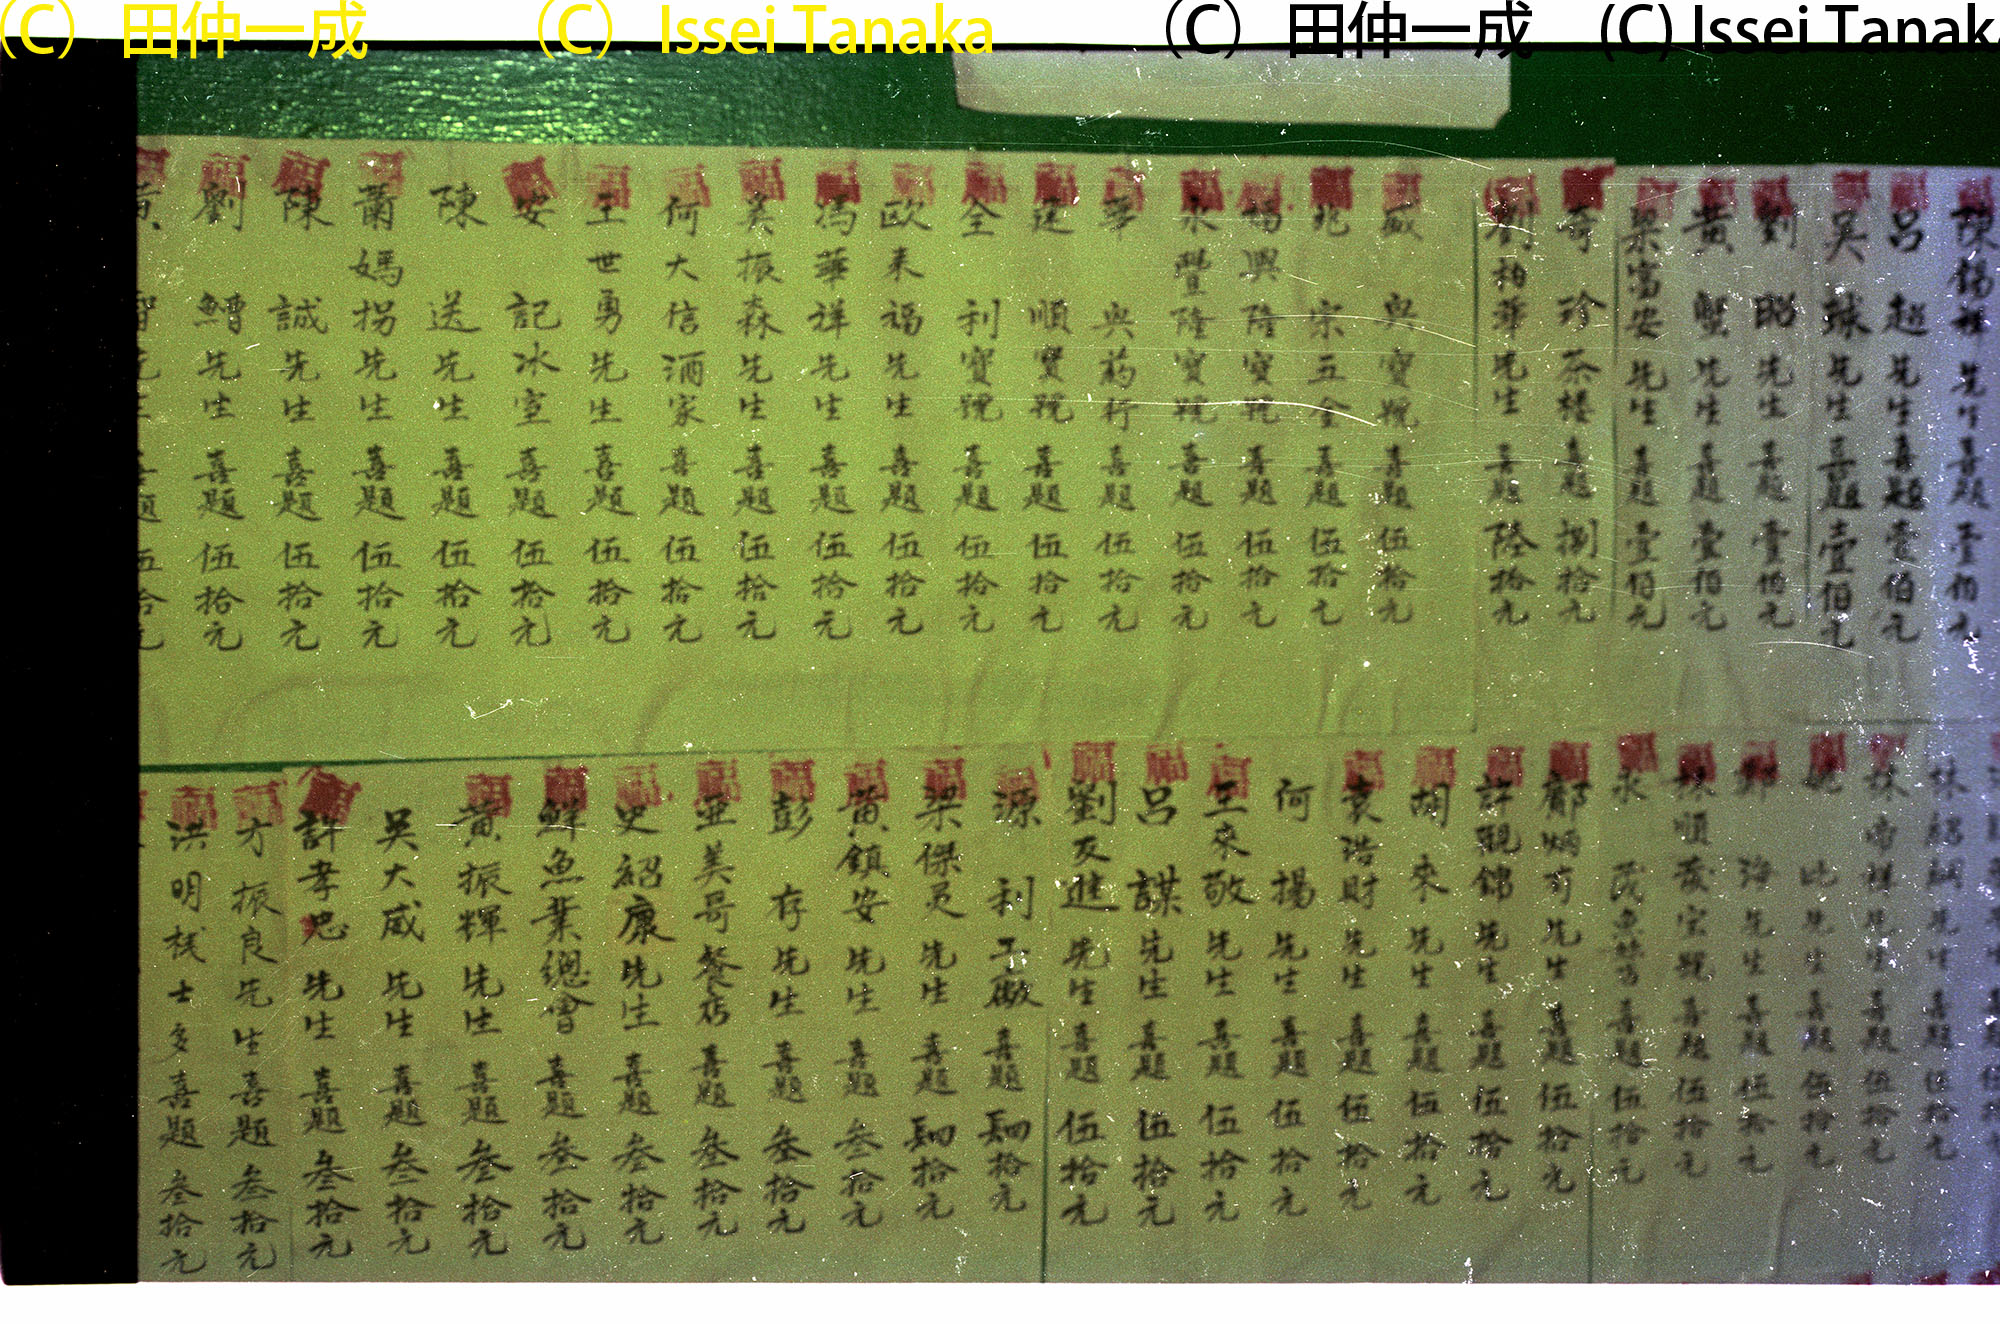 (C) 田仲一成 (C) Issei Tanaka (C) 田仲一成 (C) Issei Tanak
陳錫祥先生喜題壹佰元
呂超先生喜題壹佰元
吳球先生喜題壹佰元
劉昭先生喜題壹佰元
黃蟹先生喜題壹佰元
梁富安先生喜題壹佰元
奇珍茶楼喜題捌拾元
劉柏華先生喜題陸拾元
盛興寶號喜題伍拾元
兆宗五金喜題伍拾元
福興隆寶號喜題伍拾元
永豐隆寶號喜題伍拾元
華興葯行喜題伍拾元
廷順寶號喜題伍拾元
全利寶號喜題伍拾元
欧来福先生喜題伍拾元
馮華祥先生喜題伍拾元
吳振森先生喜題伍拾元
何大信酒家喜題伍拾元
王世勇先生喜題伍拾元
安記冰室喜題伍拾元
陳送先生喜題伍拾元
蕭媽拐先生喜題伍拾元
陳誠先生喜題伍拾元
劉鱛先生喜題伍拾元
黃先生喜題伍拾元
林先生喜題伍拾元
林帝祥先生喜題伍拾元
先生喜題伍拾元
鄭海先生喜題伍拾元
順發宝號喜題伍拾元
永茂魚喜題伍拾元
鄺炳芳先生喜題伍拾元
許觀錦先生喜題伍拾元
胡來先生喜題伍拾元
袁浩財先生喜題伍拾元
何揚先生喜題伍拾元
王來敬先生喜題伍拾元
呂謀先生喜題伍拾元
劉友進先生喜題伍拾元
源利工廠喜題肆拾元
梁傑灵先生喜題肆拾元
黃鎮安先生喜題叁拾元
彭存先生喜題叁拾元
亜美哥餐店喜題叁拾元
史紹康先生喜題叁拾元
鮮魚業總會喜題叁拾元
黃振輝先生喜題叁拾元
吳大威先生喜題叁拾元
許孝忠先生喜題叁拾元
方振良先生喜題叁拾元
洪明栈士多喜題叁拾元